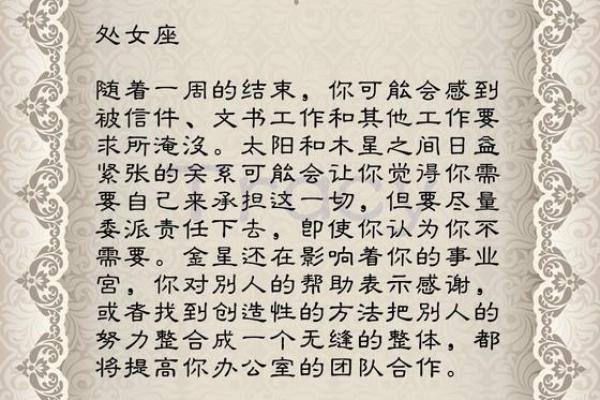 处女座
随着一周的结束，你可能会感到
被信件、文书工作和其他工作要
求所淹没。太阳和木星之间日益
紧张的关系可能会让你觉得你需
要自己来承担这一切，但要尽量
委派责任下去，即使你认为你不
需要。金星还在影响着你的事业
宫，你对别人的帮助表示感谢，
或者找到创造性的方法把别人的
努力整合成一个无缝的整体，都
将提高你办公室的团队合作。
Tracy